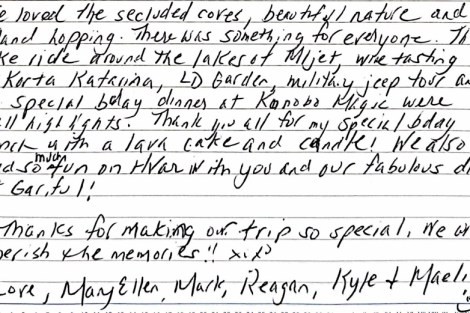 e loved the secluded coves, beautiful nature and
land hopping. There was something for everyone. Th
ke ride around the lakes of Mljet, wine tasting
Korta Katarina, LD Garden, military jeep tour an
special bday dinner at Konoba Magic were
ll highlights. Thank you all for my special bday
nch with a lava cake and candle! We also
ad so much fun on Hvar with you and our fabulous di
Gariful!
Thanks for making our trip so special. We w
herish the memories!! xoxo
Love, MaryEllen, Mark, Reagan, Kyle + Maeli